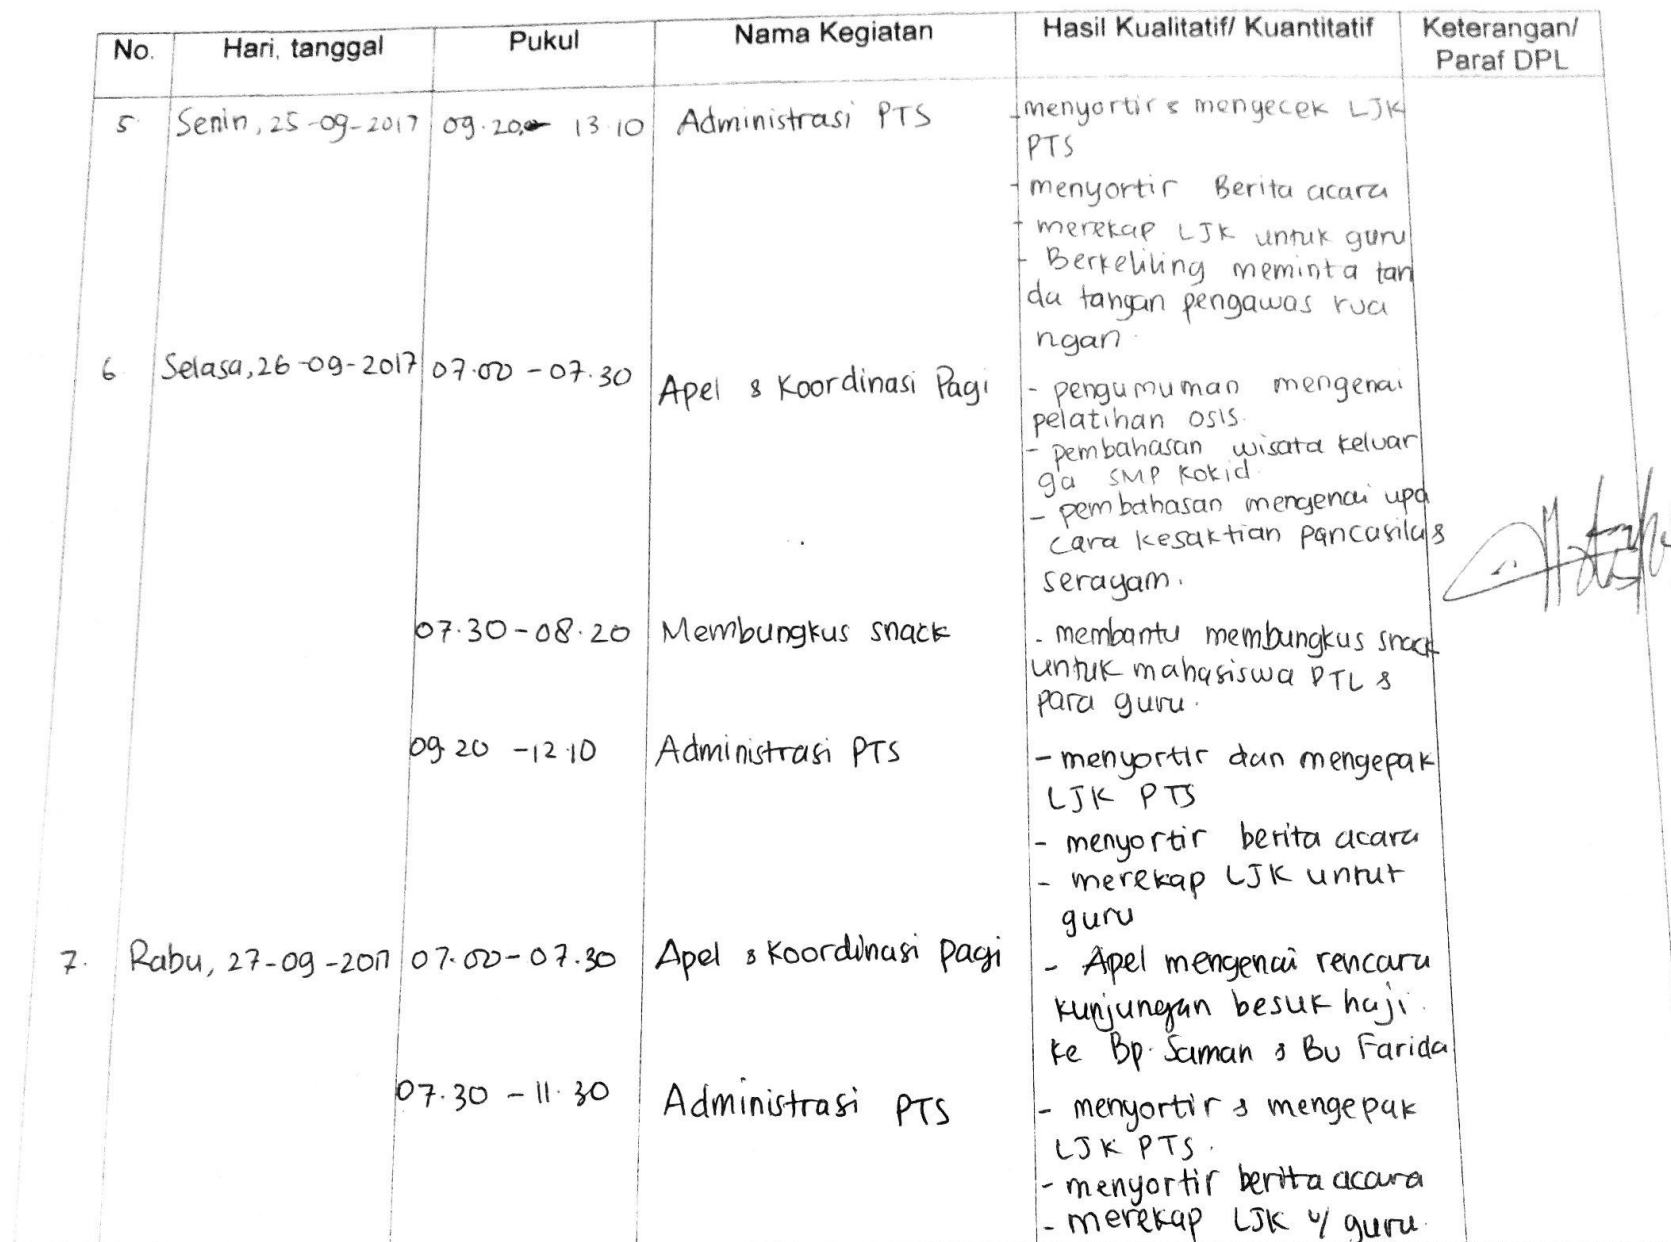 No. Hari, tanggal Pukul Nama Kegiatan Hasil Kualitatif/ Kuantitatif Keterangan/
Paraf DPL
5 Senin, 25-09-2017 09.20 - 13.10 Administrasi PTS - menyortir & mengecek LJK
PTS
- menyortir Berita acara
- merekap LJK untuk guru
- Berkeliling meminta tan
da tangan pengawas rua
ngan.
6 Selasa, 26-09-2017 07.00 - 07.30 Apel & Koordinasi Pagi - pengumuman mengenai
pelatihan osis.
- pembahasan wisata keluar
ga SMP Kokid.
- pembahasan mengenai upa
cara kesaktian pancasila &
seragam.
07.30 - 08.20 Membungkus snack - membantu membungkus snack
untuk mahasiswa PTL &
para guru.
09.20 - 12.10 Administrasi PTS - menyortir dan mengepak
LJK PTS
- menyortir berita acara
- merekap LJK untuk
guru
7. Rabu, 27-09-2017 07.00 - 07.30 Apel & Koordinasi pagi - Apel mengenai rencana
kunjungan besuk haji.
ke Bp. Saman & Bu Farida
07.30 - 11.30 Administrasi PTS - menyortir & mengepak
LJK PTS.
- menyortir berita acara
- merekap LJK u/ guru.